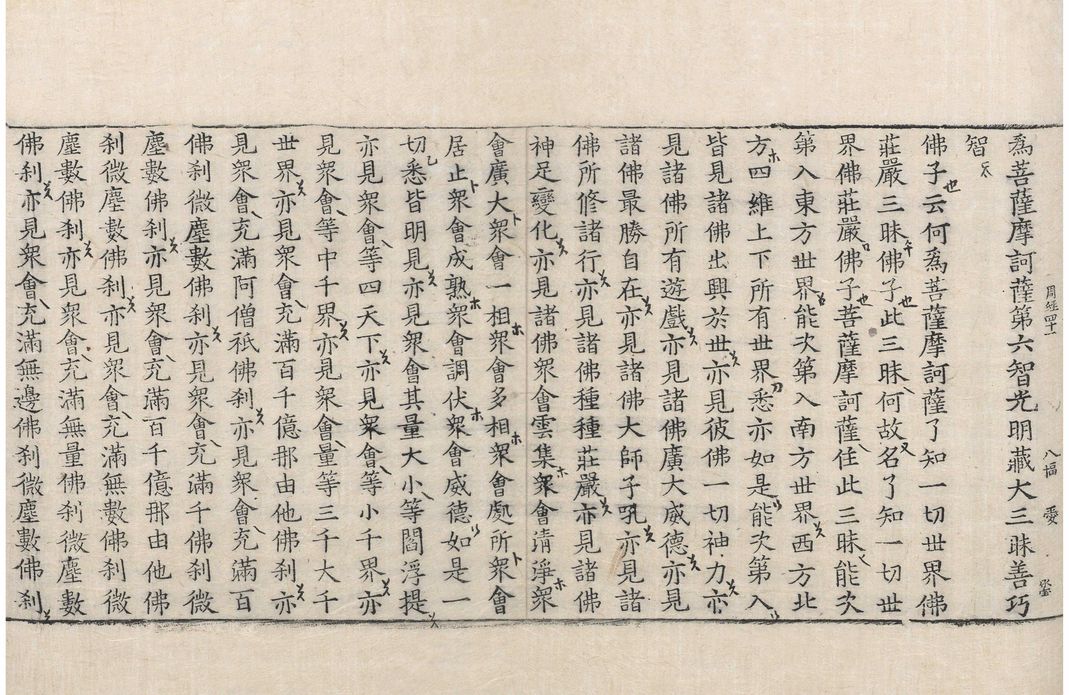 爲菩薩摩訶薩第六智光明藏大三昧善巧
智
周經四十一 八幅 愛
佛子云何爲菩薩摩訶薩了知一切世界佛
莊嚴三昧佛子此三昧何故名了知一切世
界佛莊嚴佛子菩薩摩訶薩住此三昧能次
第入東方世界能次第入南方世界西方北
方四維上下所有世界悉亦如是能次第入
皆見諸佛出興於世亦見彼佛一切神力亦
見諸佛所有遊戲亦見諸佛廣大威德亦見
諸佛最勝自在亦見諸佛大師子吼亦見諸
佛所修諸行亦見諸佛種種莊嚴亦見諸佛
神足變化亦見諸佛衆會雲集衆會清淨衆
會廣大衆會一相衆會多相衆會處所衆會
居止衆會成熟衆會調伏衆會威德如是一
切悉皆明見亦見衆會其量大小等閻浮提
亦見衆會等四天下亦見衆會等小千界亦
見衆會等中千界亦見衆會量等三千大千
世界亦見衆會充滿百千億那由他佛刹亦
見衆會充滿阿僧祇佛刹亦見衆會充滿百
佛刹微塵數佛刹亦見衆會充滿千佛刹微
塵數佛刹亦見衆會充滿百千億那由他佛
刹微塵數佛刹亦見衆會充滿無數佛刹微
塵數佛刹亦見衆會充滿無量佛刹微塵數
佛刹亦見衆會充滿無邊佛刹微塵數佛刹